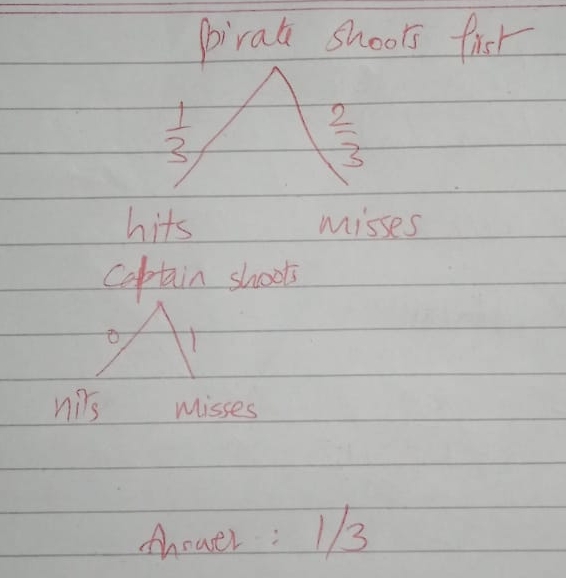 pirate shoots first
1/3 2/3
hits misses
Captain shoots
0 1
hits misses
Answer : 1/3